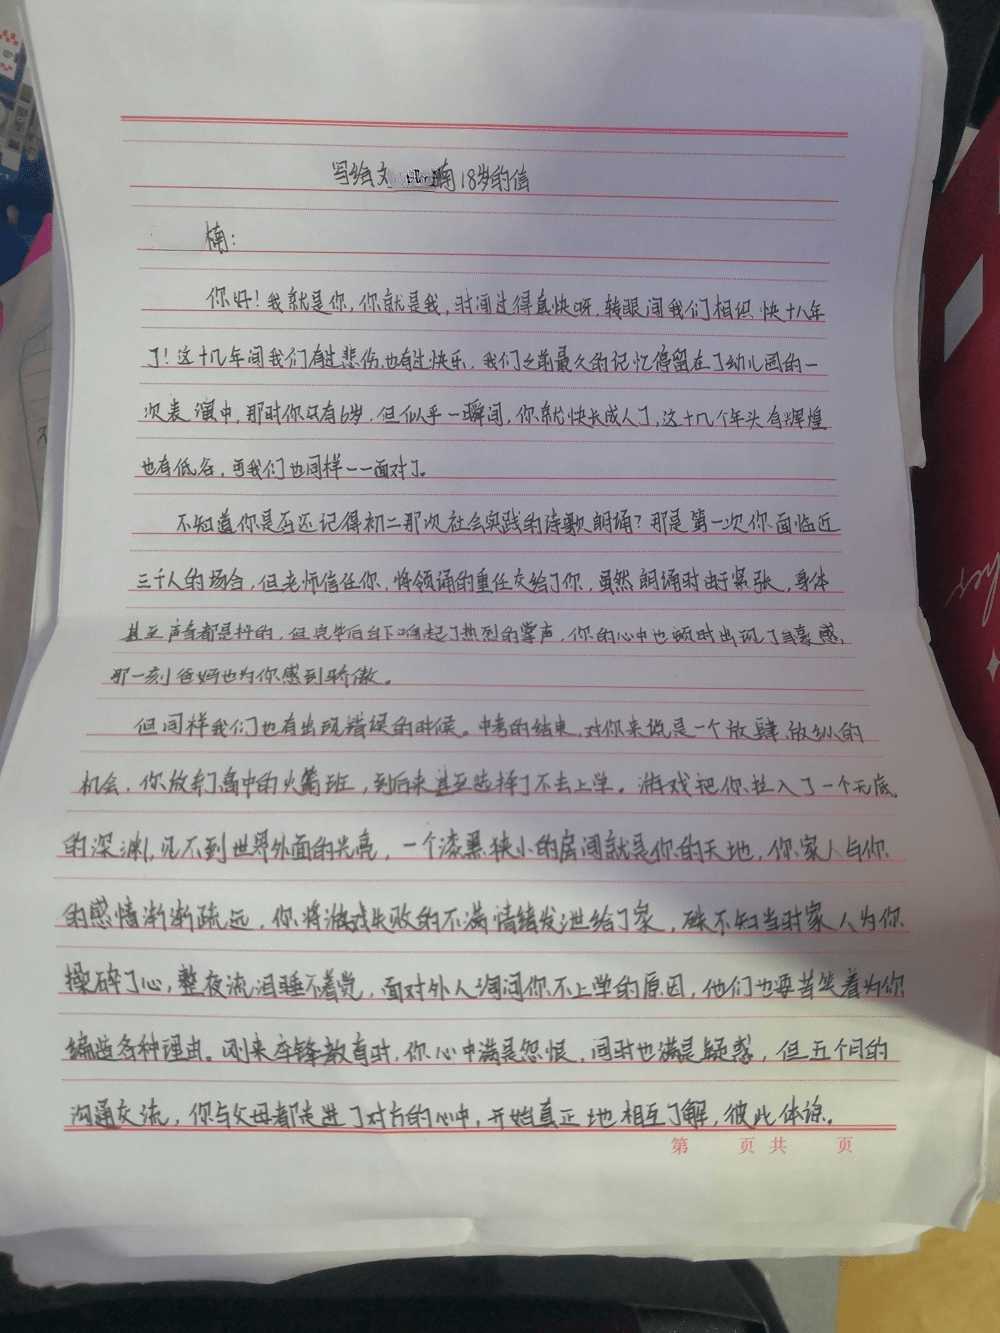 写给文楠18岁的信
楠：
你好！我就是你，你就是我，时间过得真快呀，转眼间我们相识快十八年
了！这十几年间我们有过悲伤，也有过快乐，我们之前最久的记忆停留在了幼儿园的一
次表演中，那时你只有6岁，但似乎一瞬间，你就快长成人了，这十几个年头有辉煌
也有低谷，可我们也同样一一面对了。
不知道你是否还记得初二那次社会实践的诗歌朗诵？那是第一次你面临近
三千人的场合，但老师信任你，将领诵的重任交给了你，虽然朗诵时由于紧张，身体
甚至声音都是抖的，但完毕后台下响起了热烈的掌声，你的心中也顿时出现了自豪感，
那一刻爸妈也为你感到骄傲。
但同样我们也有出现错误的时候。中考的结束，对你来说是一个放肆、放纵的
机会，你放弃了高中的火箭班，到后来甚至选择了不去上学。游戏把你拉入了一个无底
的深渊，见不到世界外面的光亮，一个漆黑狭小的房间就是你的天地，你家人与你
的感情渐渐疏远，你将游戏失败的不满情绪发泄给了家，殊不知当时家人为你
操碎了心，整夜流泪睡不着觉，面对外人询问你不上学的原因，他们也要苦笑着为你
编造各种理由。刚来李锋教育时，你心中满是怨恨，同时也满是疑惑，但五个月的
沟通交流，你与父母都走进了对方的心中，开始真正地相互了解，彼此体谅。
第 页 共 页